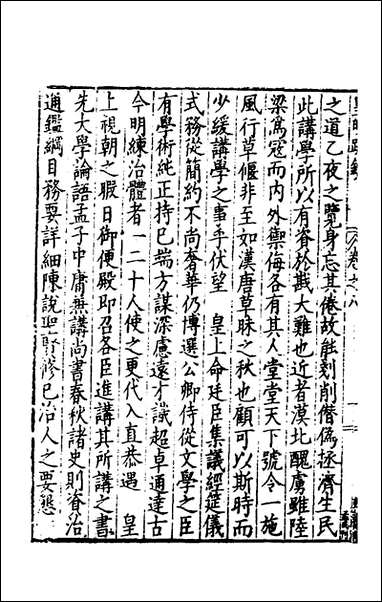 之道乙夜之覽身忘其倦故能刻削僭偽拯濟生民
此講學所以有資於戡大難也近者漠北醜虜雖陸
梁為寇而内外禦侮各有其人堂堂天下號令一施
風行草偃非至如漢唐草昧之秋也顧可以斯時而
少緩講學之事乎伏望 皇上命廷臣集議經筵儀
式務從簡約不尚奢華仍博選公卿侍從文學之臣
有學術純正持已端方謀深慮遠才識超卓通達古
今明練治體者一二十人使之更代入直恭遇 皇
上視朝之暇日御便殿即召各臣進講其所講之書
先大學論語孟子中庸無講尚書春秋諸史則資治
通鑑綱目務要詳細陳說聖賢修已治人之要懇